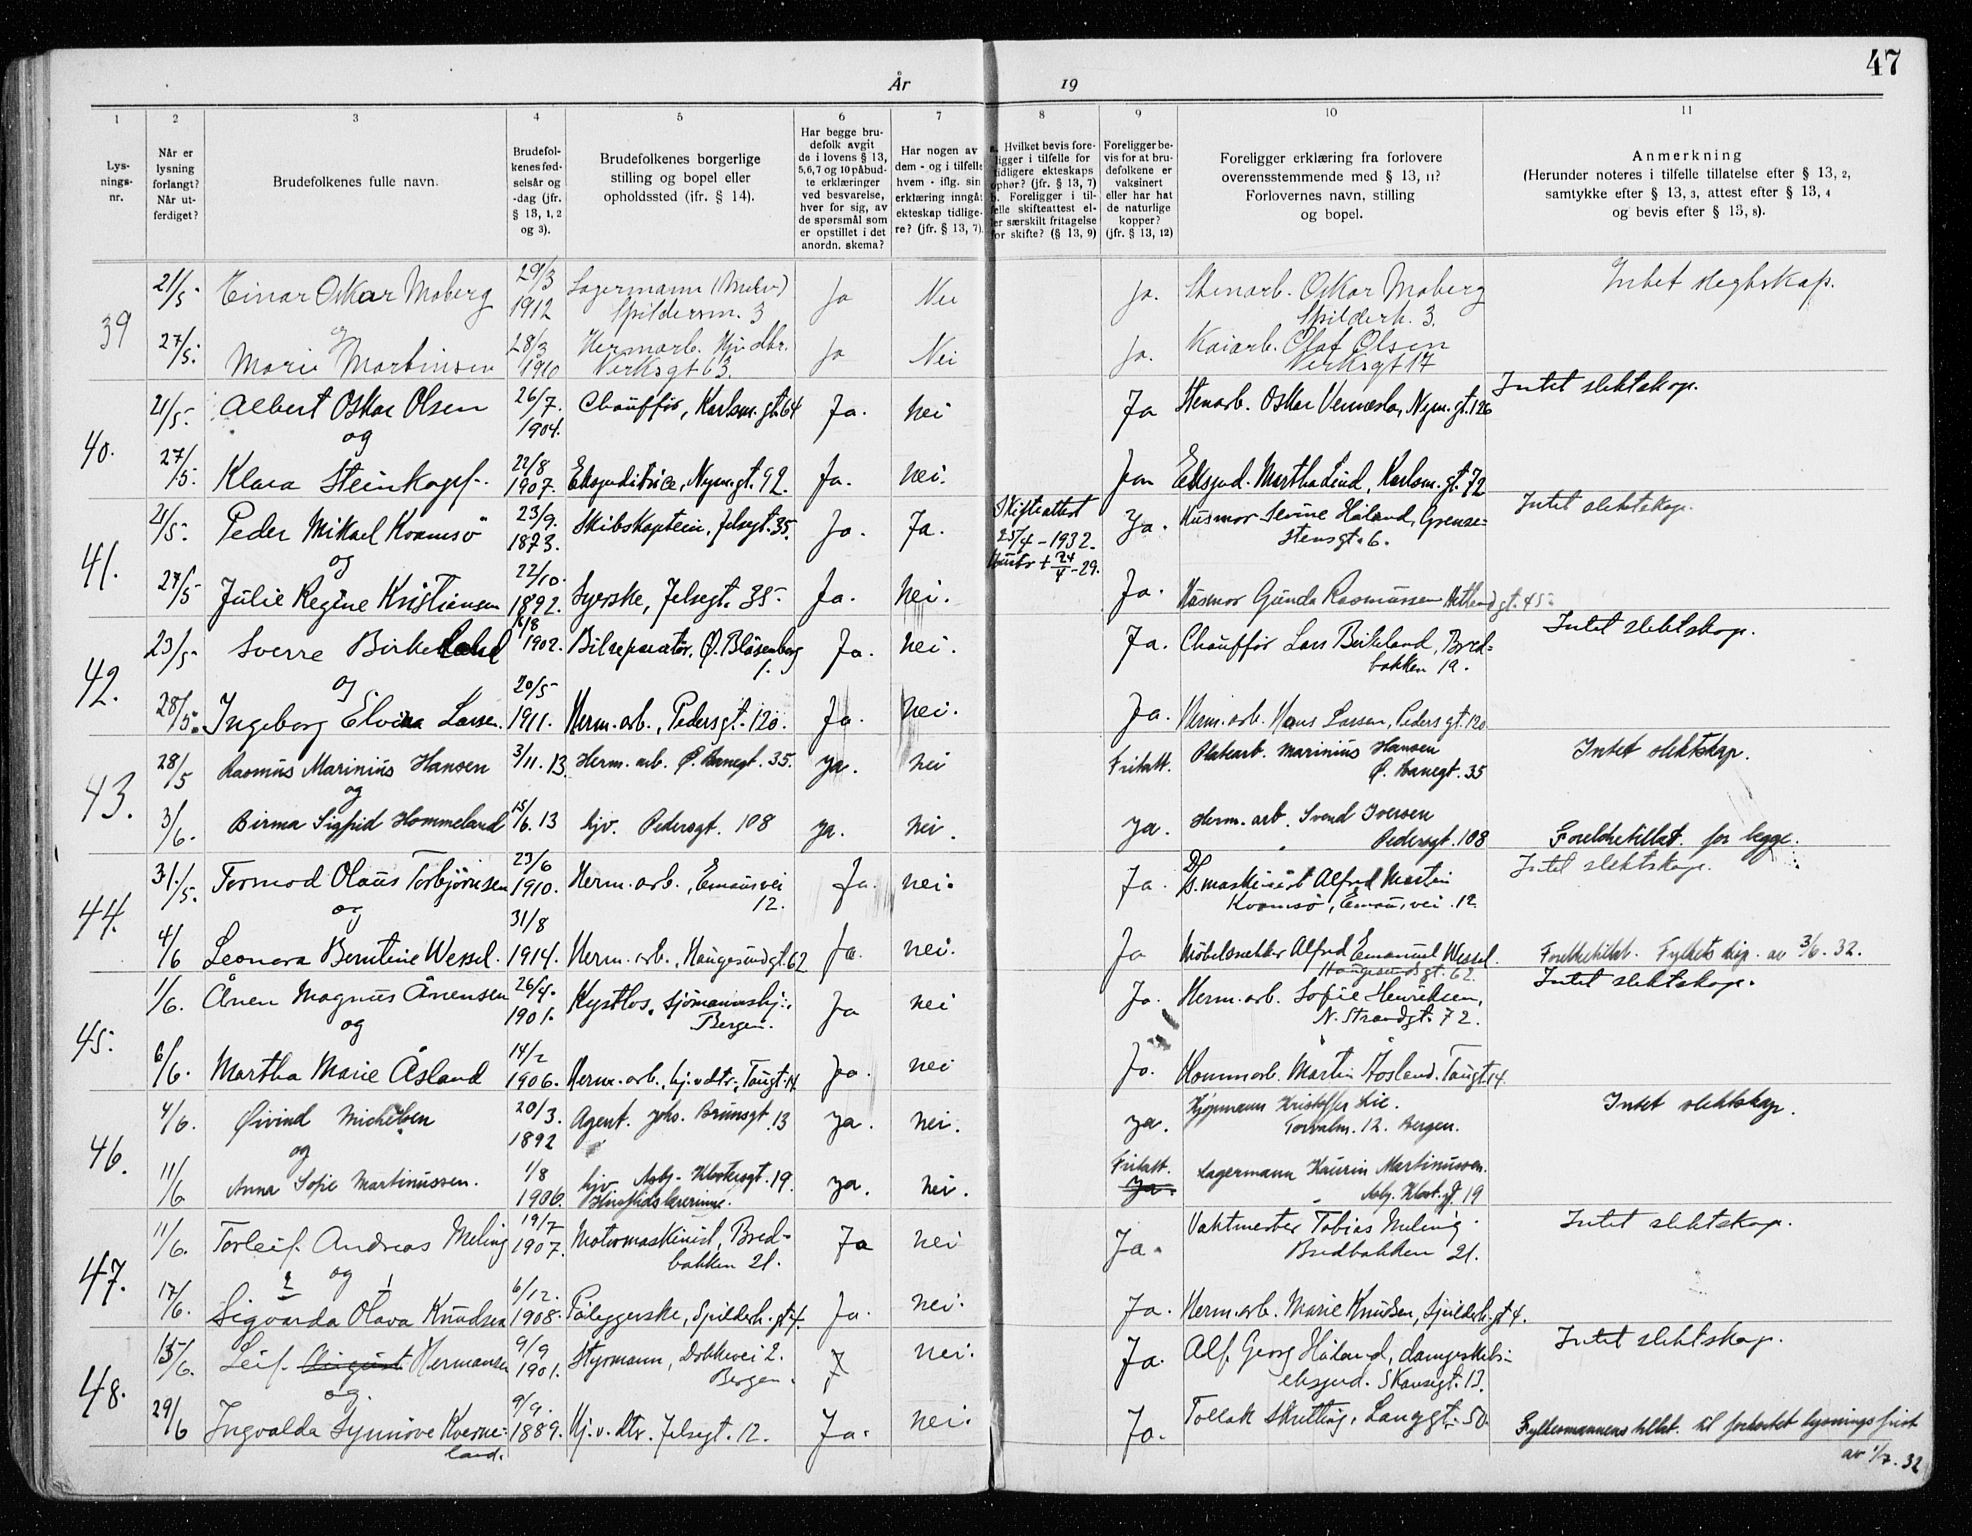 47
År 19
1 2 3 4 5 6 7 8 9 10 11
Lys-
nings-
nr.
Når er
lysning
forlangt?
Når ut-
ferdiget?
Brudefolkenes fulle navn.
Brudefol-
kenes fød-
selsår og
-dag (jfr.
§ 13, 1, 2
og 3).
Brudefolkenes borgerlige
stilling og bopel eller
opholdssted (ifr. § 14).
Har begge bru-
defolk avgit
de i lovens § 13,
5, 6, 7 og 10 påbud-
te erklæringer
ved besvarelse,
hver for sig, av
de spørsmål som
er opstillet i det
anordn. skema?
Har nogen av
dem - og i tilfelle
hvem - iflg. sin
erklæring inngåt
ekteskap tidlige-
re? (jfr. § 13, 7).
Hvilket bevis fore-
ligger i tilfelle for
tidligere ekteskaps
ophør? (jfr. § 13, 7)
b. Foreligger i til-
felle skifteattest el-
ler særskilt fritagelse
for skifte? (§ 13, 9)
Foreligger be-
vis for at bru-
defolkene er
vaksinert
eller har hat
de naturlige
kopper?
(jfr. § 13, 12)
Foreligger erklæring fra forlovere
overensstemmende med § 13, 11?
Forlovernes navn, stilling
og bopel.
Anmerkning
(Herunder noteres i tilfelle tillatelse efter § 13, 2,
samtykke efter § 13, 3, attest efter § 13, 4
og bevis efter § 13, 8).
39
21/5 Einar Oskar Moberg 29/3 1912 Lagermann
Spildersm. 3 Ja Nei Ja. Stenarb. Oskar Moberg
Spilderh. 3. Intet slegtskap.
og
27/5. Marie Martinsen 28/3 1910 Hermarb. Hjv dtr.
Verksgt 63. Ja Nei Ja. Kaiarb. Olaf Olsen
Verksgt 17
40.
21/5- Albert Oskar Olsen 26/7. 1904. Chauffør, Karlsm. gt. 64 Ja. nei Ja Stenarb. Oskar Vennesla, Nym. gt. 126 Intet slektskap.
og
27/5- Klara Steinkopf. 22/8 1907. Ekspeditrice, Nym. gt. 92. Ja. nei. Ja Eksped. Martha Lind, Karlsm. gt. 72
41.
21/5- Peder Mikael Kvamsö 23/9. 1873. Skibskaptein, Jelsgt. 35. Ja. Ja. Skifteattest
25/4 - 1932.
Hustr + 24/4 - 29. Ja. Husmor Sevine Håland, Grense-
stensgt. 6. Intet slektskap.
og
27/5 Julie Regine Kristiansen 22/10. 1892. Syerske, Jelsegt. 35- Ja. nei. Ja. Husmor Gunda Rasmussen Hetlandgt. 45-
42.
23/5- Sverre Birkeland 1902. Bilreparatör, Ø. Blåsenborg
1. Ja. nei. Ja. Chauffør Lars Birkeland, Bred-
bakken 19. Intet slektskap.
og
28/5. Ingeborg Elvina Larsen. 20/5- 1911. Herm. arb., Pedersgt. 120. Ja. nei. Ja. Herm. arb. Hans Larsen, Pedersgt. 120
43.
28/5 Rasmus Marinius Hansen 3/11. 13. Herm. arb. Ø. Banegt. 35. ja. nei Fritatt. Platearb. Marinius Hansen
Ø. Banegt. 35 Intet slektskap.
og
3/6. Birma Sigfrid Hommeland 15/6. 13 hjv. Pedersgt. 108 ja. nei. ja. Herm. arb. Svend Iversen
Pedersgt. 108 Foreldretillat. for begge.
44.
31./5- Tormod Olaus Torbjörnsen 23/6 1910. Herm. arb., Emausvei
12. Ja. nei. Ja. Ds. maskinist Alfred Martin
Kvamsö, Emausvei 12. Intet slektskap.
og
4/6 Leonora Berntine Wessel. 31/8 1914. Herm. arb., Haugesundgt. 62 Ja. nei. Ja Möbelsnekker Alfred Emanuel Wessel.
Haugesundsgt. 62. Foreldretillat. Fylkets disp. av 3/6. 32.
45.
1/6. Ånen Magnus Ånensen 26/4. 1901. Kystlos, Sjömannshj.,
Bergen. Ja nei Ja. Herm. arb. Sofie Henriksen,
N. Strandgt. 72. Intet slektskap.
og
6/6. Martha Marie Åsland 14/2 1906. Herm. arb., hj. v. dtr., Taugt. 14. Ja. nei Ja. Kommarb. Martin Åsland. Taugt. 14.
46.
4/6. Øivind Michelsen 20/3. 1892 Agent. Johs. Brunsgt. 13 ja. nei. ja. Kjøpmann Kristoffer Lie.
Torvalm. 12. Bergen. Intet slektskap.
og
11/6 Anna Sofie Martinussen. 1/8 1906. hjv. Asbj. Klostersgt. 19.
Husflidslærerinne. ja. nei. Fritatt.
ja. Lagermann Kaurin Martinussen.
Asbj. Klost. gt. 19
47.
11/6. Torleif Andreas Meling 19/7 1907. Motormaskinist, Bred-
bakken 21. Ja nei Ja. Vaktmester Tobias Meling
Bredbakken 21. Intet slektskap.
2 og 1
17/6. Sigvarda Olava Knudsen 6/12. 1908. Påleggerske, Spilderh. gt. 4. Ja. nei. Ja. Herm. arb. Marie Knudsen, Spilderh. gt 4.
48.
15/6. Leif August Hermansen 9/9 1901. Styrmann, Dokkevei 2.
Bergen. J nei. Ja. Alf Georg Håland, dampskibs-
eksped. Skansegt. 13. Intet slektskap.
og.
29/6 Ingvalda Synnöve Kverne-
land. 9/9. 1889. Hj. v. dtr. Jelsegt. 12. Ja. nei. Ja. Tollak Skretting, Langgt. 50. Fylkesmannens tillat. til forkortet lysningsfrist
av 1/7. 32